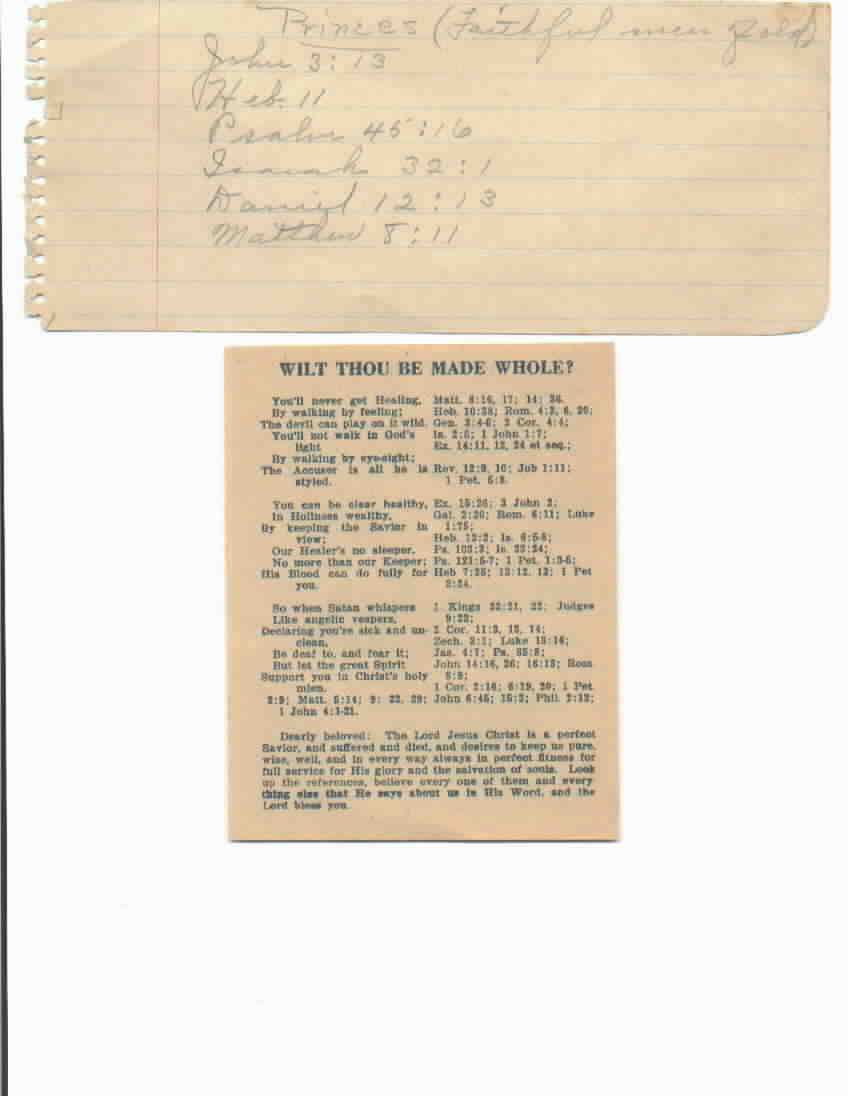 Princes (Faithful men of old)
John 3:13
Heb. 11
Psalm 45:16
Isaiah 32:1
Daniel 12:13
Matthew 8:11
WILT THOU BE MADE WHOLE?
You'll never get Healing, Matt. 8:16, 17; 14: 36.
By walking by feeling; Heb. 10:38; Rom. 4:3, 6, 20;
The devil can play on it wild. Gen. 3:4-6; 2 Cor. 4:4;
You'll not walk in God's Is. 2:5; 1 John 1:7;
light Ex. 14:11, 12, 24 et seq.;
By walking by eye-sight;
The Accuser is all he is Rev. 12:9, 10; Job 1:11;
styled. 1 Pet. 5:8.
You can be clear healthy, Ex. 15:26; 3 John 2;
In Holiness wealthy, Gal. 2:20; Rom. 6:11; Luke
By keeping the Savior in 1:75;
view; Heb. 12:2; Is. 6:5-8;
Our Healer's no sleeper, Ps. 103:3; Is. 33:24;
No more than our Keeper; Ps. 121:5-7; 1 Pet. 1:3-5;
His Blood can do fully for Heb 7:25; 13:12, 13; 1 Pet
you. 2:24.
So when Satan whispers 1 Kings 22:21, 22; Judges
Like angelic vespers, 9:23;
Declaring you're sick and un- 2 Cor. 11:3, 13, 14;
clean, Zech. 3:1; Luke 13:16;
Be deaf to, and fear it; Jas. 4:7; Ps. 85:8;
But let the great Spirit John 14:16, 26; 16:13; Rom
Support you in Christ's holy 8:9;
mien. 1 Cor. 2:16; 6:19, 20; 1 Pet.
2:9; Matt. 5:14; 9: 22, 29; John 6:45; 15:3; Phil. 2:13;
1 John 4:1-21.
Dearly beloved: The Lord Jesus Christ is a perfect
Savior, and suffered and died, and desires to keep us pure,
wise, well, and in every way always in perfect fitness for
full service for His glory and the salvation of souls. Look
up the references, believe every one of them and every-
thing else that He says about us in His Word, and the
Lord bless you.